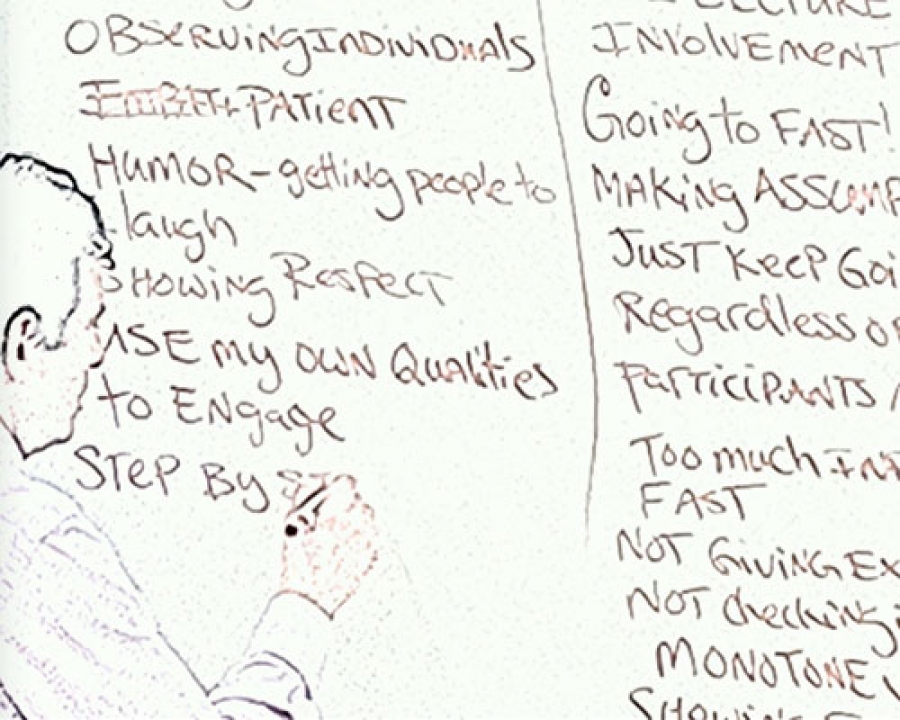 OBSERVINGINDIVIDUALS
PATIENT
HUMOR-getting people to
laugh
SHOWING RESPECT
USE my OWN Qualities
to ENgage
STEP By
LECTURE
INVOLVEMENT
Going to FAST!
MAKING
JUST KEEP
Regardless
PARTICIPANTS
Too much
FAST
NOT GIVING
NOT checking
MONOTONE